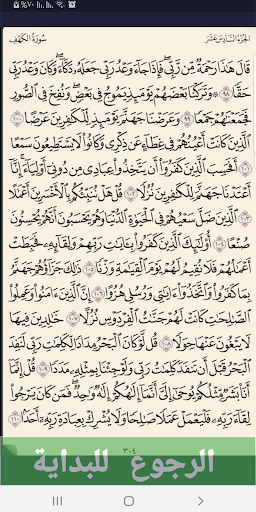 ٪٧٠
الجُزْءُ السَّادِسَ عَشَرَ سُورَةُ الكَهْفِ
قَالَ هَٰذَا رَحْمَةٌ مِّن رَّبِّي فَإِذَا جَاءَ وَعْدُ رَبِّي جَعَلَهُ دَكَّاءَ وَكَانَ وَعْدُ رَبِّي
حَقًّا ٩٨ وَتَرَكْنَا بَعْضَهُمْ يَوْمَئِذٍ يَمُوجُ فِي بَعْضٍ وَنُفِخَ فِي الصُّورِ
فَجَمَعْنَاهُمْ جَمْعًا ٩٩ وَعَرَضْنَا جَهَنَّمَ يَوْمَئِذٍ لِّلْكَافِرِينَ عَرْضًا
١٠٠ الَّذِينَ كَانَتْ أَعْيُنُهُمْ فِي غِطَاءٍ عَن ذِكْرِي وَكَانُوا لَا يَسْتَطِيعُونَ سَمْعًا
١٠١ أَفَحَسِبَ الَّذِينَ كَفَرُوا أَن يَتَّخِذُوا عِبَادِي مِن دُونِي أَوْلِيَاءَ إِنَّا
أَعْتَدْنَا جَهَنَّمَ لِلْكَافِرِينَ نُزُلًا ١٠٢ قُلْ هَلْ نُنَبِّئُكُم بِالْأَخْسَرِينَ أَعْمَالًا
١٠٣ الَّذِينَ ضَلَّ سَعْيُهُمْ فِي الْحَيَاةِ الدُّنْيَا وَهُمْ يَحْسَبُونَ أَنَّهُمْ يُحْسِنُونَ
صُنْعًا ١٠٤ أُولَٰئِكَ الَّذِينَ كَفَرُوا بِآيَاتِ رَبِّهِمْ وَلِقَائِهِ فَحَبِطَتْ
أَعْمَالُهُمْ فَلَا نُقِيمُ لَهُمْ يَوْمَ الْقِيَامَةِ وَزْنًا ١٠٥ ذَٰلِكَ جَزَاؤُهُمْ جَهَنَّمُ
بِمَا كَفَرُوا وَاتَّخَذُوا آيَاتِي وَرُسُلِي هُزُوًا ١٠٦ إِنَّ الَّذِينَ آمَنُوا وَعَمِلُوا
الصَّالِحَاتِ كَانَتْ لَهُمْ جَنَّاتُ الْفِرْدَوْسِ نُزُلًا ١٠٧ خَالِدِينَ فِيهَا
لَا يَبْغُونَ عَنْهَا حِوَلًا ١٠٨ قُل لَّوْ كَانَ الْبَحْرُ مِدَادًا لِّكَلِمَاتِ رَبِّي لَنَفِدَ
الْبَحْرُ قَبْلَ أَن تَنفَدَ كَلِمَاتُ رَبِّي وَلَوْ جِئْنَا بِمِثْلِهِ مَدَدًا ١٠٩ قُلْ إِنَّمَا
أَنَا بَشَرٌ مِّثْلُكُمْ يُوحَىٰ إِلَيَّ أَنَّمَا إِلَٰهُكُمْ إِلَٰهٌ وَاحِدٌ فَمَن كَانَ يَرْجُوا
لِقَاءَ رَبِّهِ فَلْيَعْمَلْ عَمَلًا صَالِحًا وَلَا يُشْرِكْ بِعِبَادَةِ رَبِّهِ أَحَدًا ١١٠
٣٠٤
الرجوع للبداية